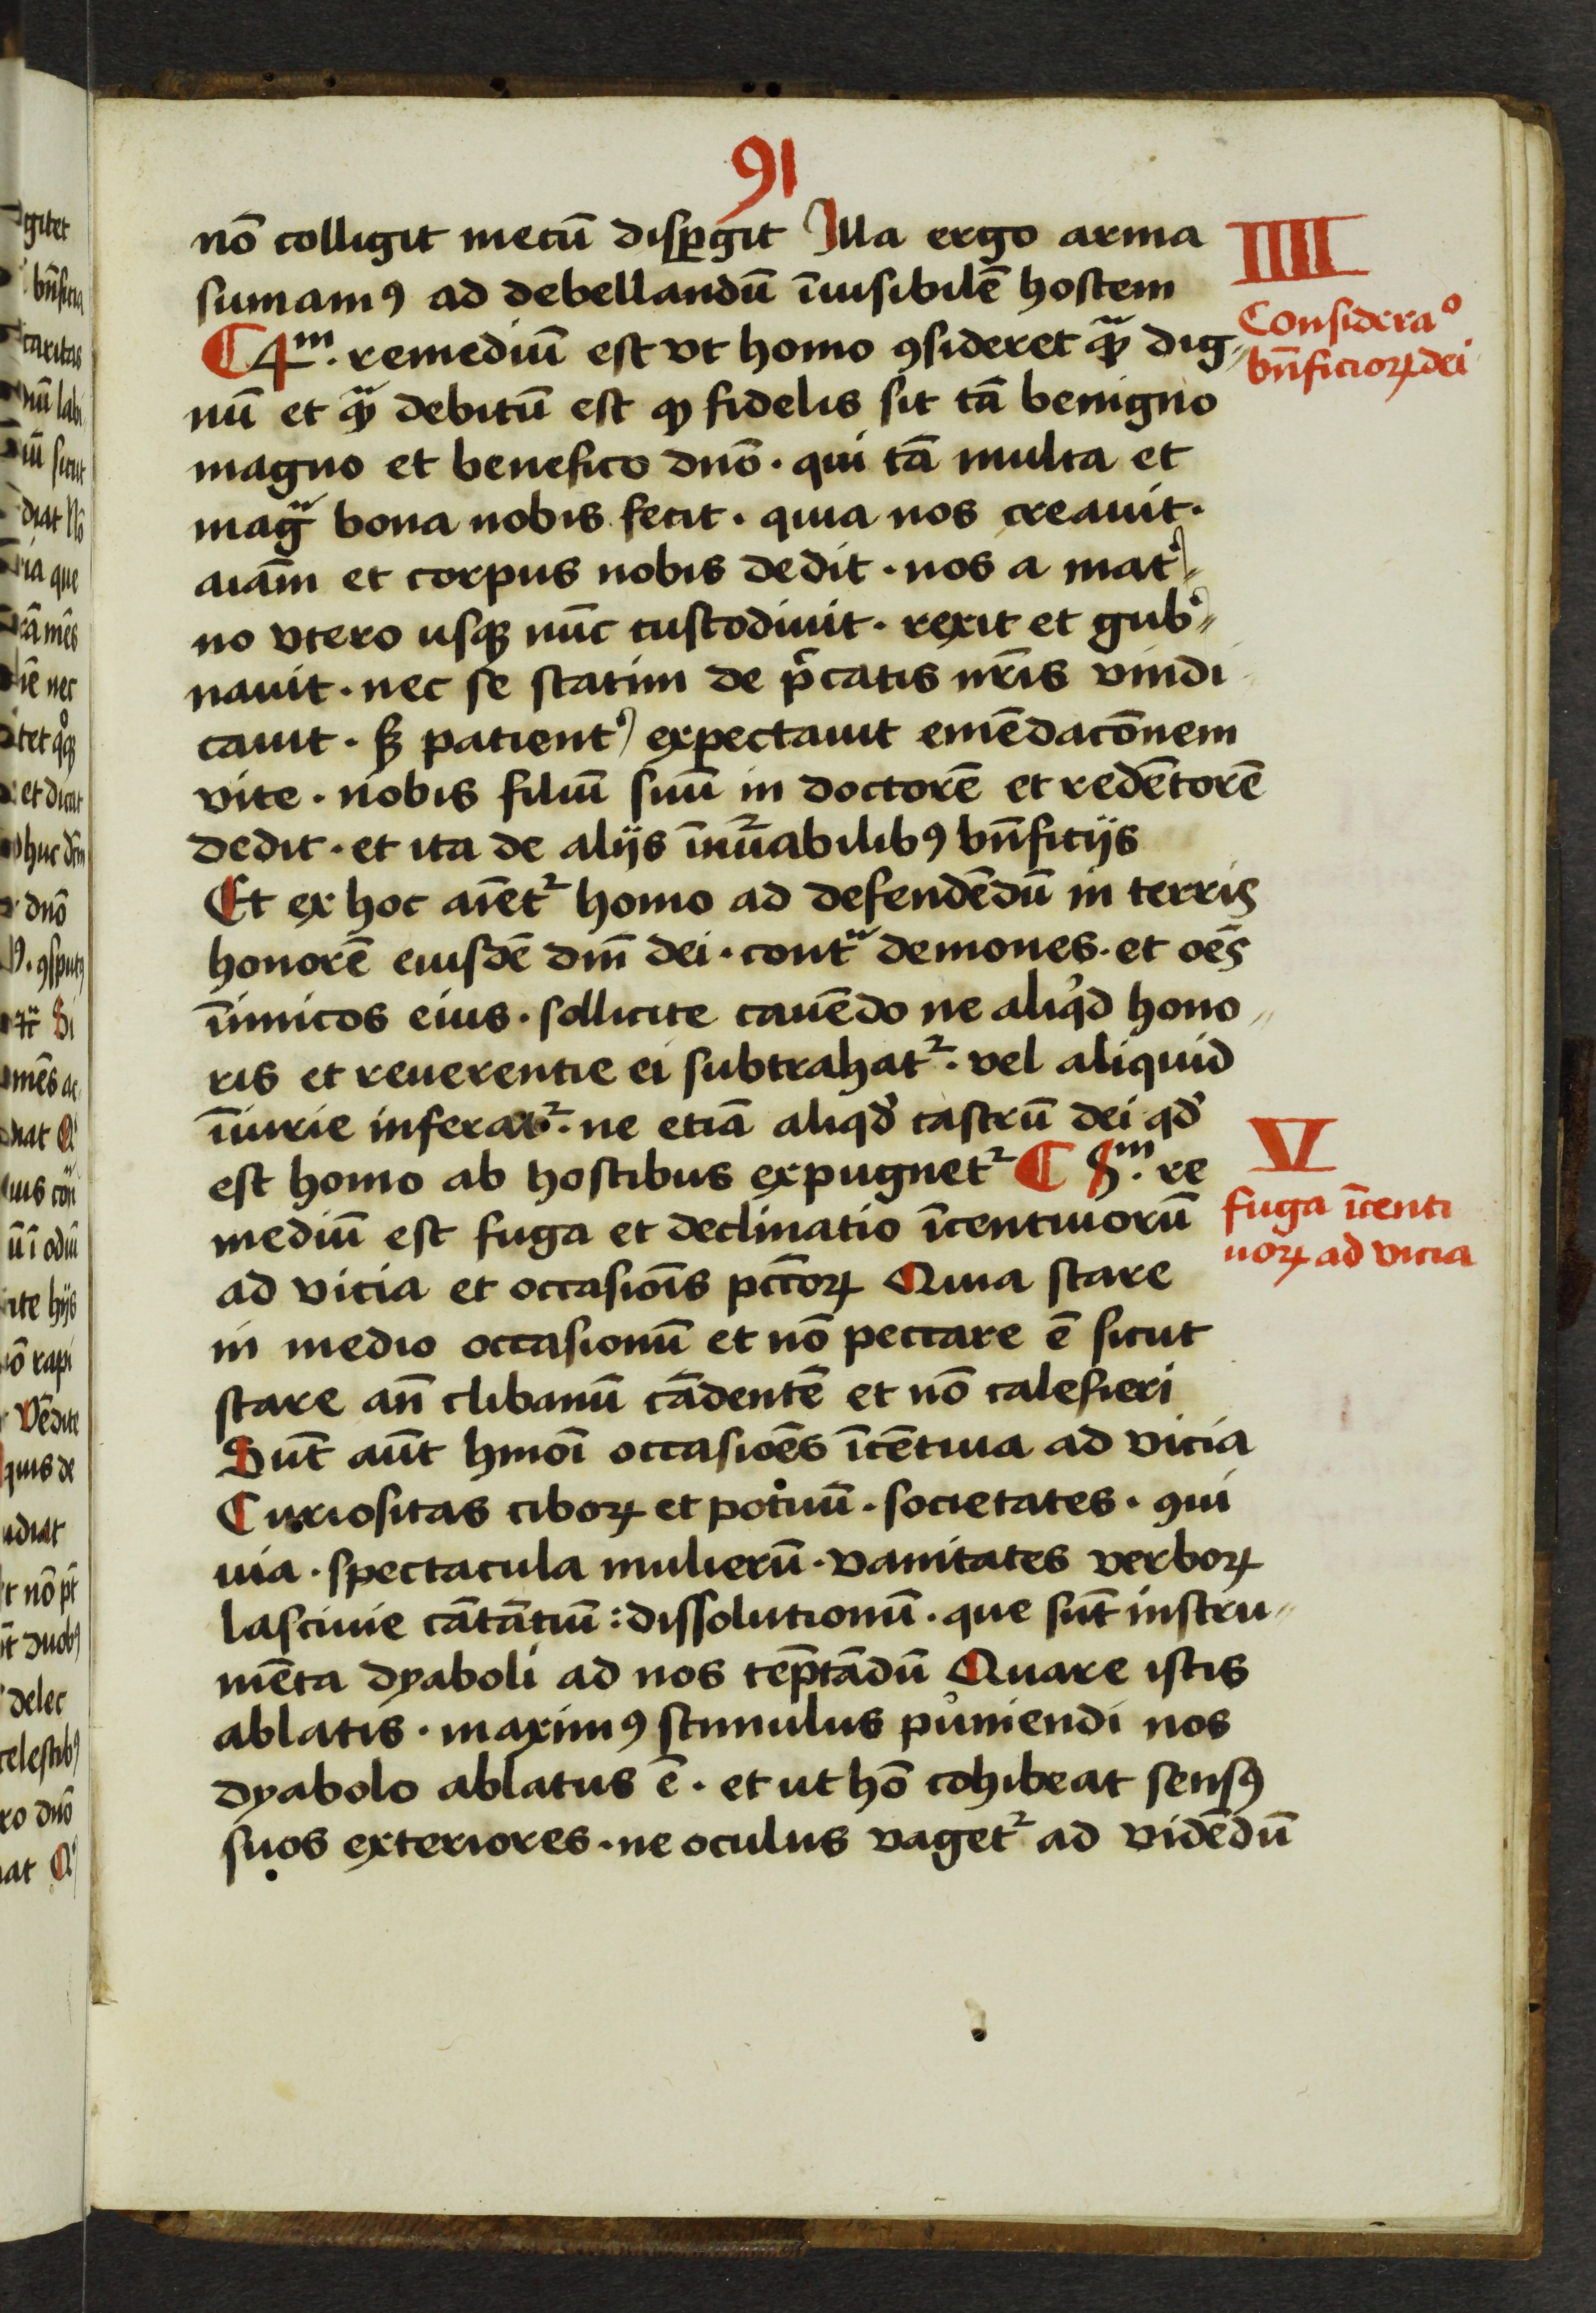 91
nō colligit mecū disꝑgit Illa ergo arma
sumamꝰ ad debellandū īuisibilē hostem
¶ 4ᵐ. remediū est vt homo ꝯsideret qᷓꝫ dig
nū et qᷓꝫ debitū est ꝙ fidelis sit tā benigno
magno et benefico dnō · qui tā multa et
magᷓ bona nobis fecit · quia nos creauit ·
aīam et corpus nobis dedit · nos a mat᾿
no vtero usqꝫ nūc custodiuit · rexit et gub᾿
nauit · nec se statim de p̄catis nr̄is vindi
cauit · sꝫ patient᾿ expectauit emēdacōnem
vite · nobis filiū suū in doctorē et redētorē
dedit · et ita de aliis īnūabilibꝰ bn̄ficiis
Et ex hoc aīet᷑ homo ad defendēdū in terris
honorē eiusdē dn̄i dei · contᷓ demones · et oēs
īimicos eius · sollicite cauēdo ne aliqͥd hono
ris et reuerentie ei subtrahat᷑ · vel aliquid
īiurie inferat᷑ · ne etiā aliqd̓ castrū dei qd̓
est homo ab hostibus expugnet᷑ ¶ 5ᵐ. re
mediū est fuga et declinatio īcentiuorū
ad vicia et occasiōīs pctōrꝝ Quia stare
in medio occasionū et nō peccare ē sicut
stare an̄ clibanū cādentē et nō calefieri
Sūt aūt hmōi occasiōēs īcētiua ad vicia
Curiositas ciborꝝ et potuū · societates · ꝯui
uia · spectacula mulierū · vanitates verborꝝ
lasciuie cātātiū : dissolutionū · que sūt instru
mēta dyaboli ad nos tēptādū Quare istis
ablatis · maximꝰ stimulus puniendi nos
dyabolo ablatus ē · et ut hō cohibeat sensꝰ
suos exteriores · ne oculus vaget᷑ ad vidēdū
IIII
Consideraᵒ
bn̄ficiorꝝ dei
V
fuga īcenti
uorꝝ ad vicia